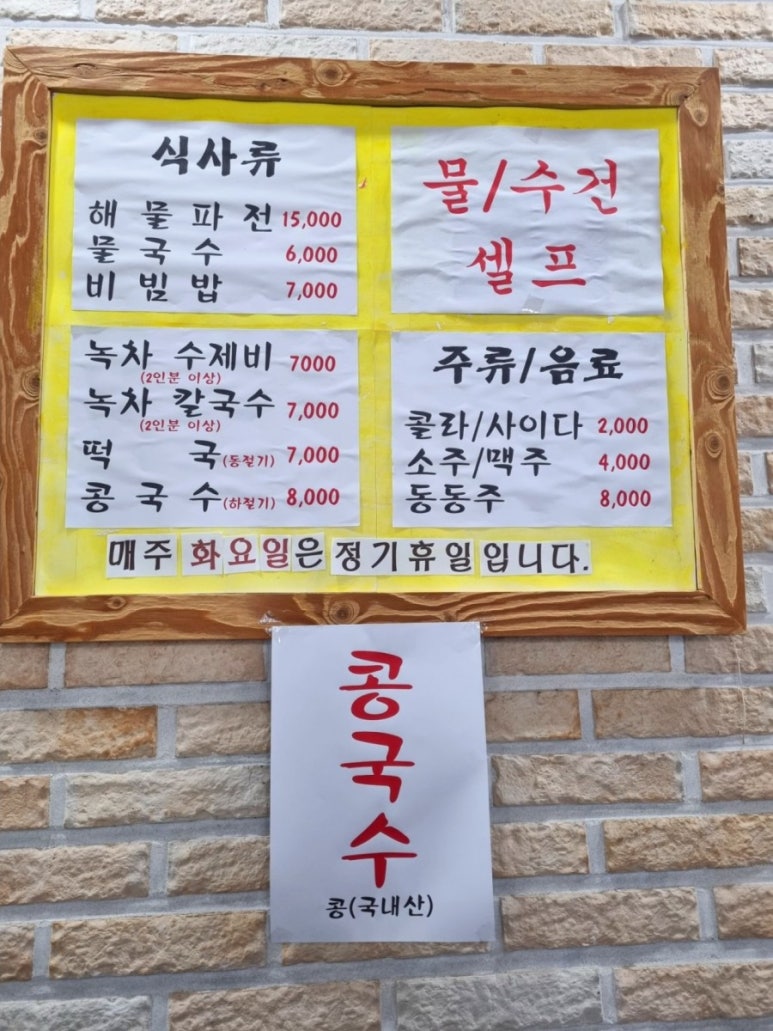 식사류
해물파전 15,000
물국수 6,000
비빔밥 7,000
물/수건
셀프
녹차 수제비 7000
(2인분 이상)
녹차 칼국수 7,000
(2인분 이상)
떡국(동절기) 7,000
콩국수(하절기) 8,000
주류/음료
콜라/사이다 2,000
소주/맥주 4,000
동동주 8,000
매주 화요일은 정기휴일입니다.
콩국수
콩(국내산)